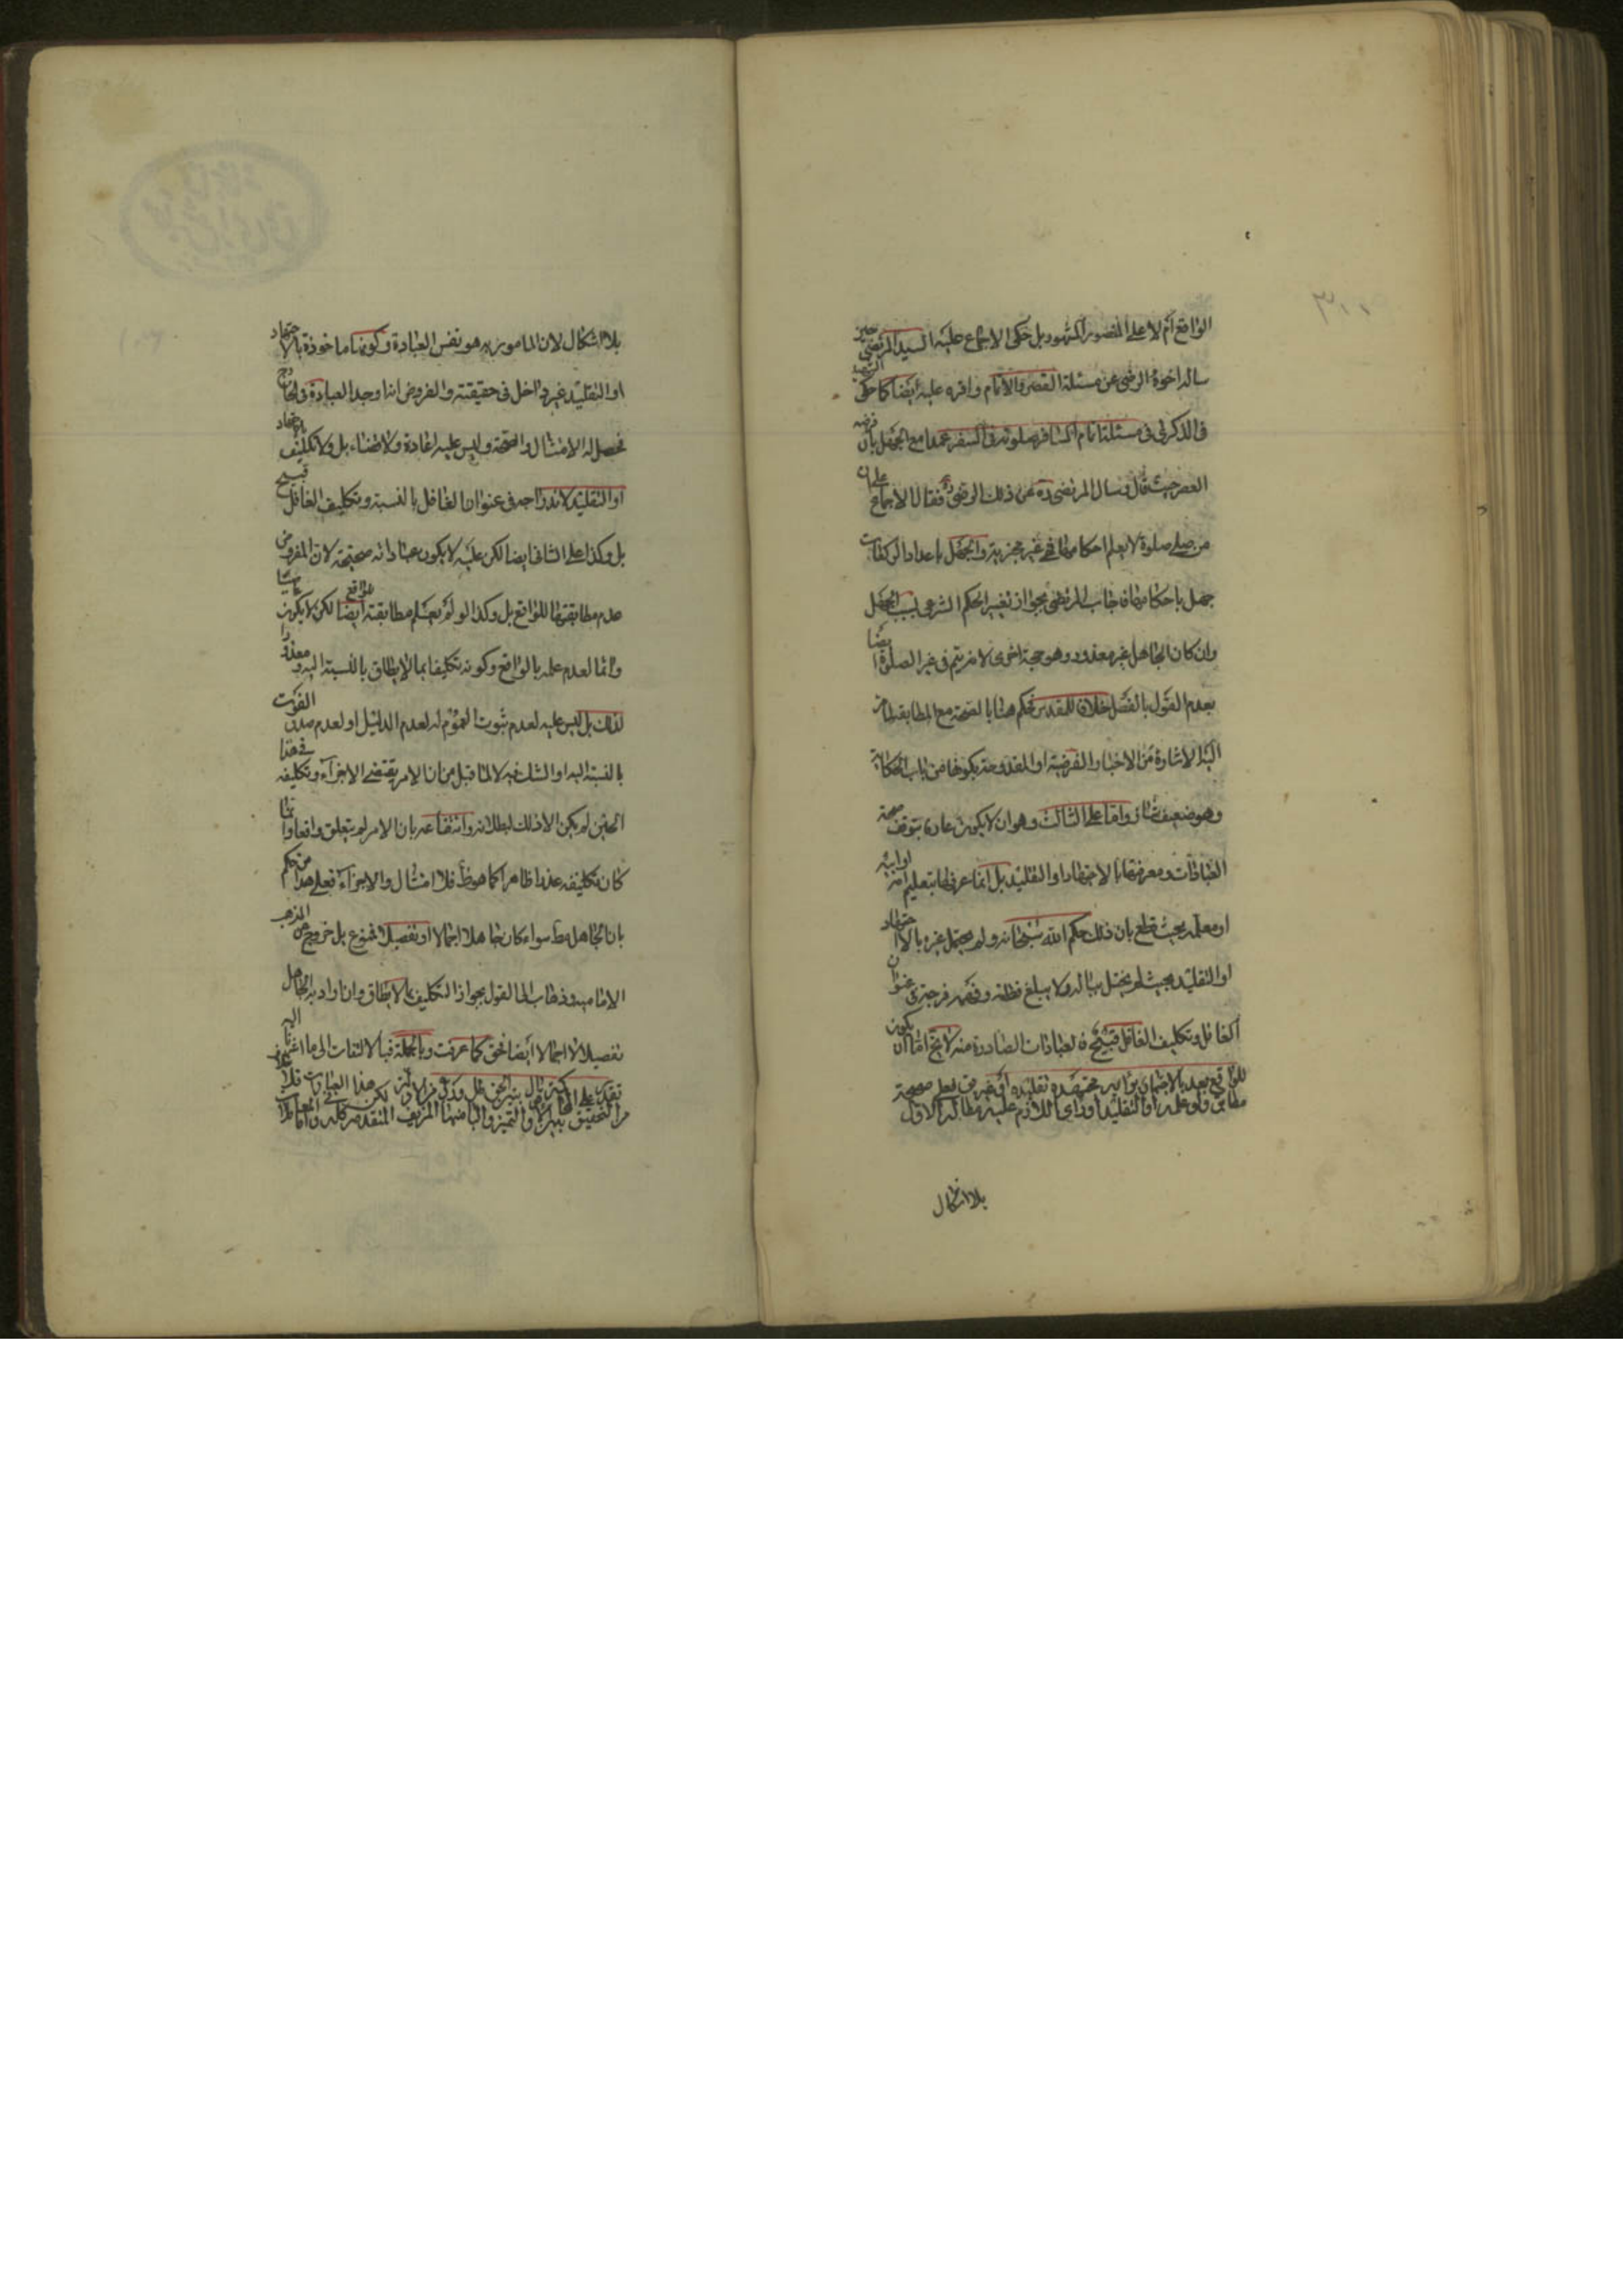 الواقع ام لا على المنصور المشهور بل حكى الاجماع عليه السيد المرتضى حين
ساله اخوه الرضى عن مسئلة القصر والاتمام واقره عليه ايضا كما حكى الشهيد
فى الذكرى فى مسئلة اتمام المسافر صلوته فى السفر عمدا مع الجهل بان فرضه
القصر حيث قال وسال المرتضى ره عن ذلك الرضى ره فقال الاجماع على ان
من صلى صلوة لا يعلم احكامها فهى غير مجزية والجهل باعداد الركعات
جهل باحكامها فاجاب المرتضى بجواز تغيير الحكم الشرعى بسبب الجهل
وان كان الجاهل غير معذور وهو حجة اخرى لا نه يتم فى غير الصلوة ايضا
بعدم القول بالفصل خلافا للمقدس فحكم هنا بالصحة مع المطابقة لما مر
اليه الاشارة من الاخبار الفرضية او المقدوحة بكونها من باب الحكاية
وهو ضعيف واما على الثالث وهو ان لا يكون عارفا بتوقف صحة
العبادات ومعرفتها بالاجتهاد او التقليد بل انما عرفها بتعليم امه او ابيه
او معلمه بحيث قطع بان ذلك حكم الله سبحانه ولم يحتمل غيره بالاجتهاد
او التقليد بحيث لم يختل بباله ولا يبلغ فطنه وفهمه فى عنوان
الغافل وتكليف الغافل قبيح فالعبادات الصادرة منه لا يخ اما ان يكون
للواقع بعد بالاجتهاد بوانه مجتهده تقليده او غير فعل صحيحة
مطابق وعلى او التقليد او راى اللازم عليه مطالبه الاول
بلا اشكال
بلا اشكال لان المامور به هو نفس العبادة وكونها ماخوذة بالاجتهاد
او التقليد غير داخل فى حقيقته والمفروض انه اوجد العبادة فى الخارج
فحصل له الامتثال والصحة وليس عليه اعادة ولا قضاء بل ولا تكليف بالاجتهاد
او التقليد لاندراجه فى عنوان الغافل بالنسبة وتكليف الغافل قبيح
بل وكذا على الثانى ايضا لكن عليه لا يكون عباداته صحيحة لان المفروض
عدم مطابقتها للواقع بل وكذا لو لم يعلم مطابقته للواقع ايضا لكن لا يكون
واثما لعدم علمه بالواقع وكونه تكليفا بما لا يطاق بالنسبة اليه ومعذورا
لذلك بل ليس عليه لعدم ثبوت العموم له لعدم الدليل او لعدم صدق الفوت
بالنسبة اليه او الشك فيه لا لما قيل من ان الامر يقتضى الاجزاء وتكليفه فى هذا
الحين لم يكن الا ذلك لبطلانه وانتفاعه بان الامر لم يتعلق واقعا وانما
كان تكليفه عذرا ظاهرا كما هو ظ فلا امتثال والاجزاء فعلى هذا من حكم
بان الجاهل مط سواء كان جاهلا اجمالا او تفصيلا ممنوع بل خروج عن المذهب
الامامية وذهاب الى القول بجواز التكليف بما لا يطاق وان اراد به الجاهل
تفصيلا لا اجمالا ايضا فحق كما عرفت وبالجملة فبالالتفات الى ما اشرنا اليه
تقدر على كثير هذا العبادات فلا
من التحقيق والتمييز المزيف المتقدمة